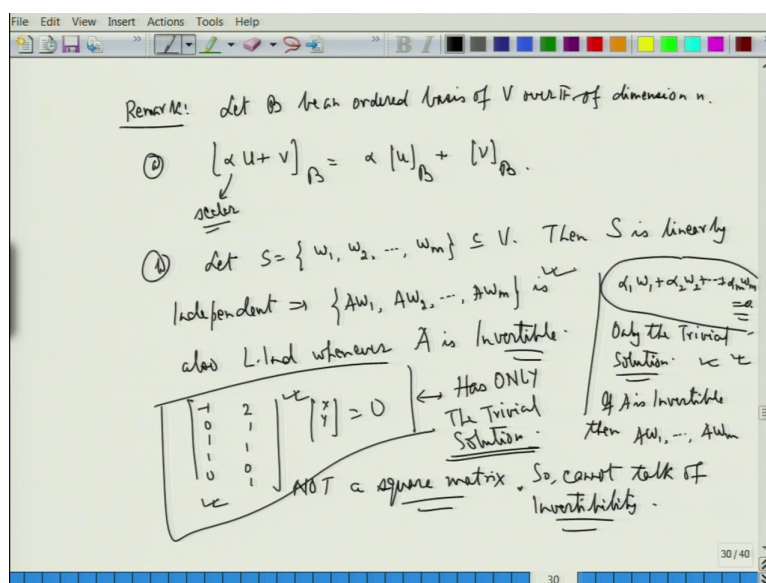 File Edit View Insert Actions Tools Help
Remark: Let B be an ordered basis of V over F of dimension n.
(a) [α u + v]_B = α [u]_B + [v]_B.
scalar
(b) Let S = { w1, w2, ..., wm } ⊆ V. Then S is linearly
Independent ⇒ {Aw1, Aw2, ..., Awm} is
also L.Ind whenever A is Invertible.
α1 w1 + α2 w2 + ... + αm wm = 0
Only the Trivial
Solution.
If A is Invertible
then Aw1, ..., Awm
[-1 2
0 1
1 1
1 1
0 0
1] [x
y] = 0
← Has ONLY
The Trivial
Solution.
NOT a square matrix. So, cannot talk of
Invertibility.
30/40
30